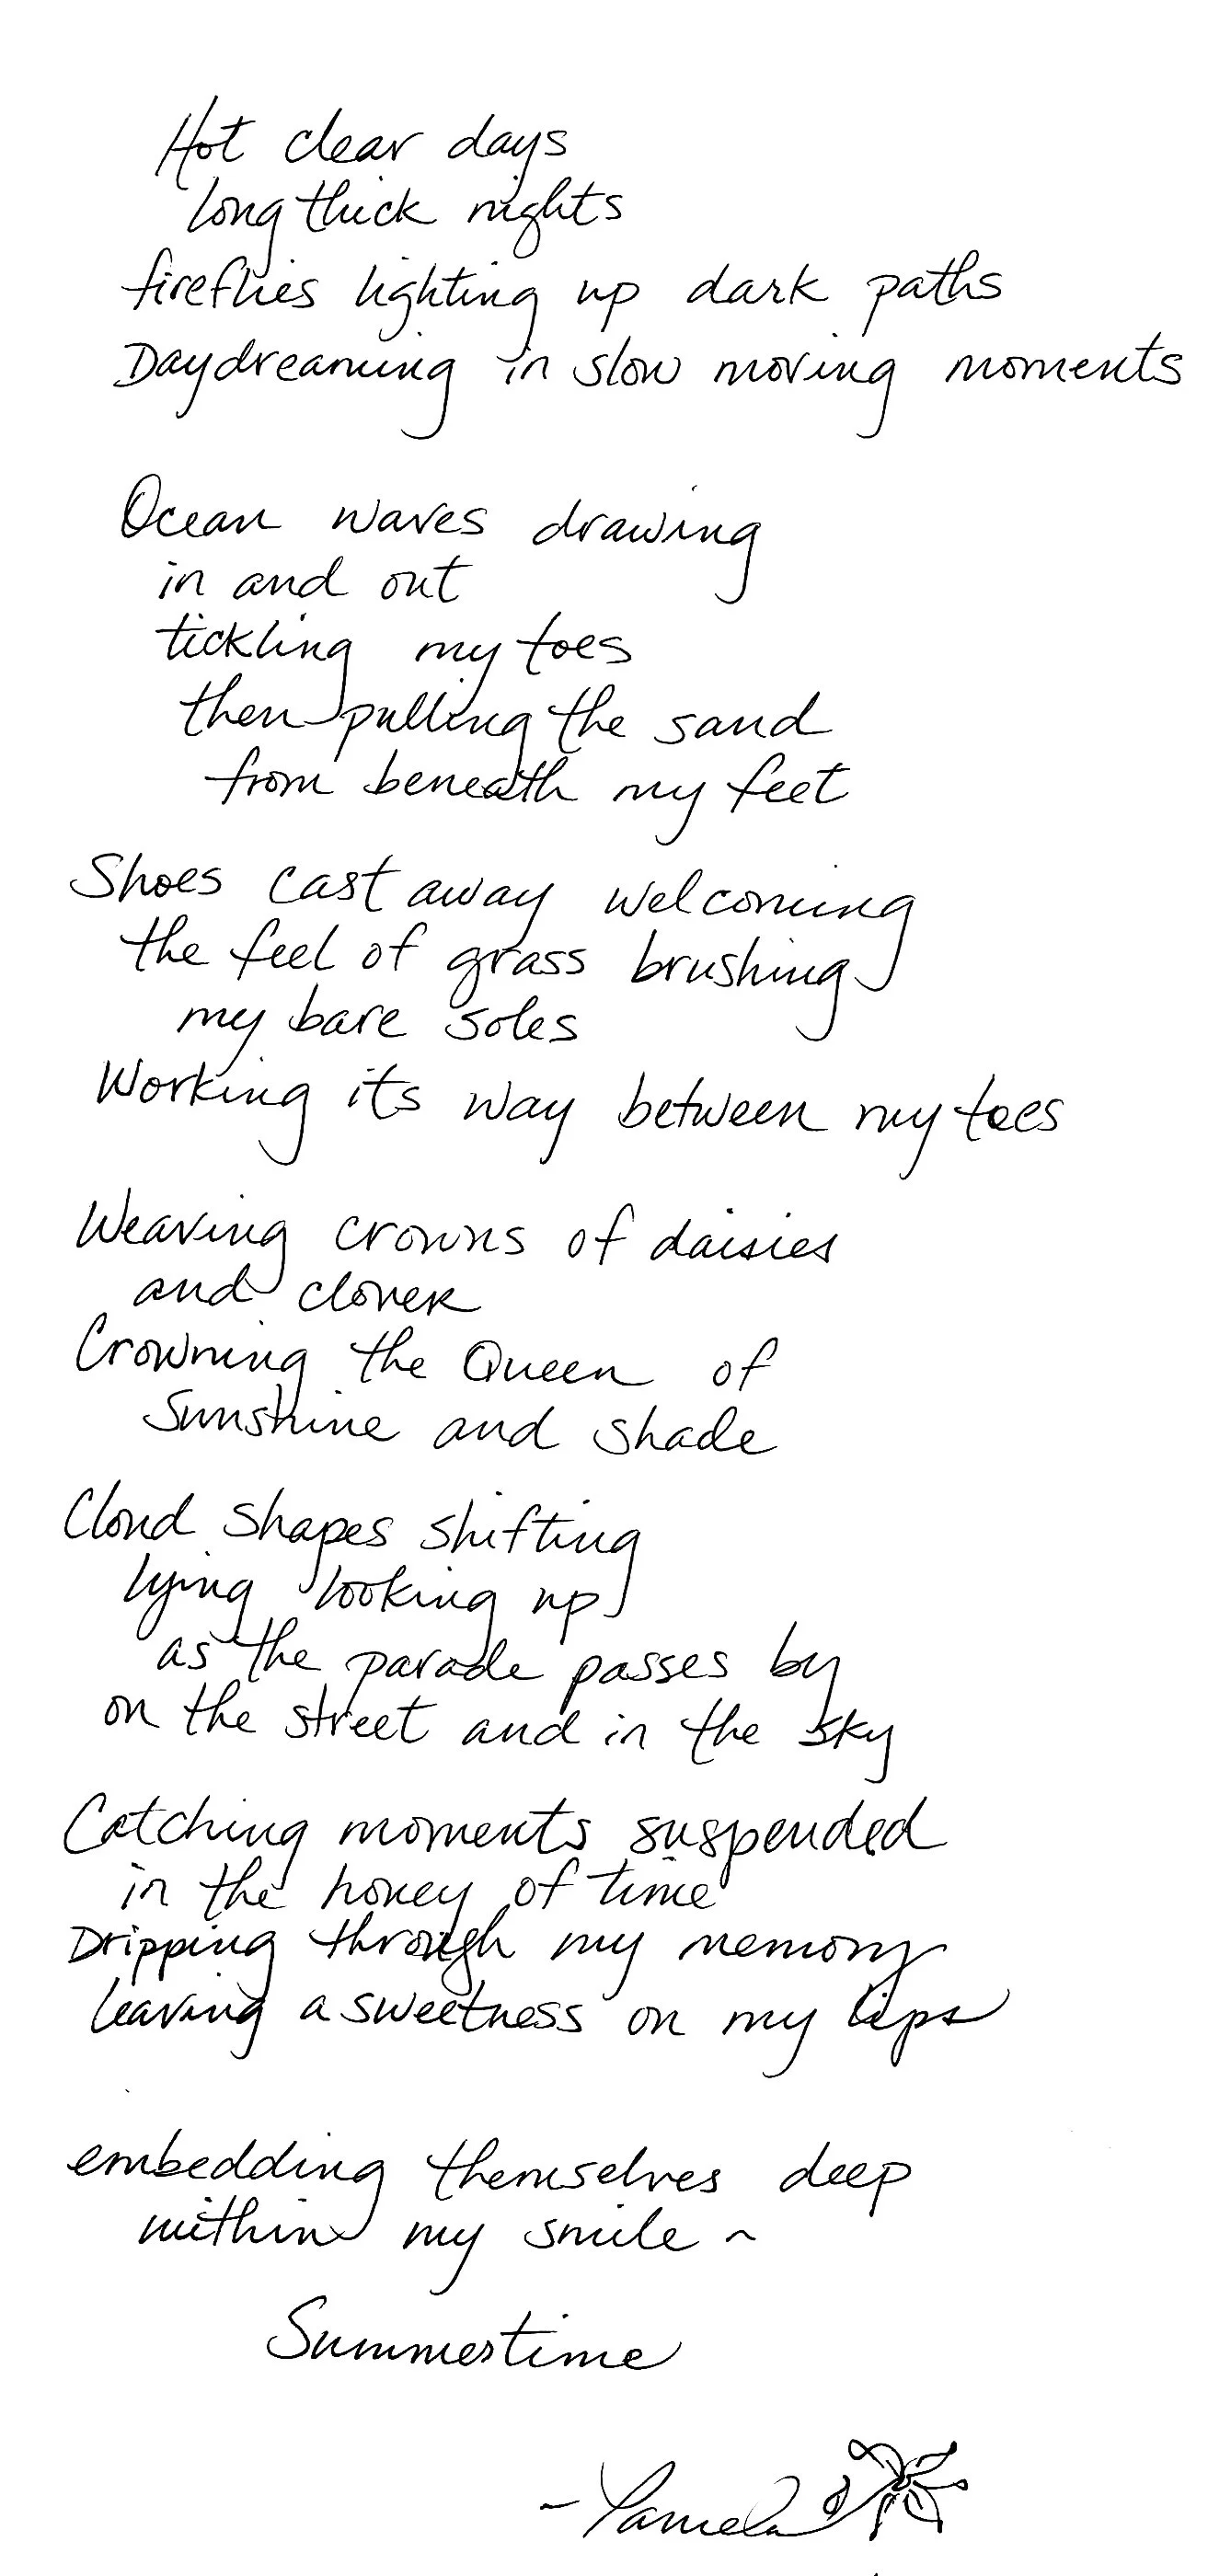 Hot clear days
long thick nights
fireflies lighting up dark paths
Daydreaming in slow moving moments
Ocean waves drawing
in and out
tickling my toes
then pulling the sand
from beneath my feet
Shoes cast away welcoming
the feel of grass brushing
my bare soles
Working its way between my toes
Weaving crowns of daisies
and clover
Crowning the Queen of
Sunshine and shade
Cloud shapes shifting
lying looking up
as the parade passes by
on the street and in the sky
Catching moments suspended
in the honey of time
Dripping through my memory
leaving a sweetness on my lips
embedding themselves deep
within my smile ~
Summertime
- Pamela